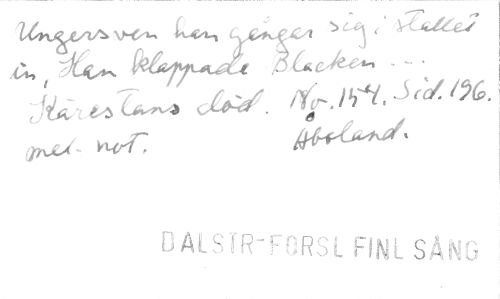 Ungersven han gångar sig i stallet
in, Han klappade Blacken ...
Kärestans död. No. 154. Sid. 196.
med not. Åboland.
DALSTR-FORSL FINL SÅNG